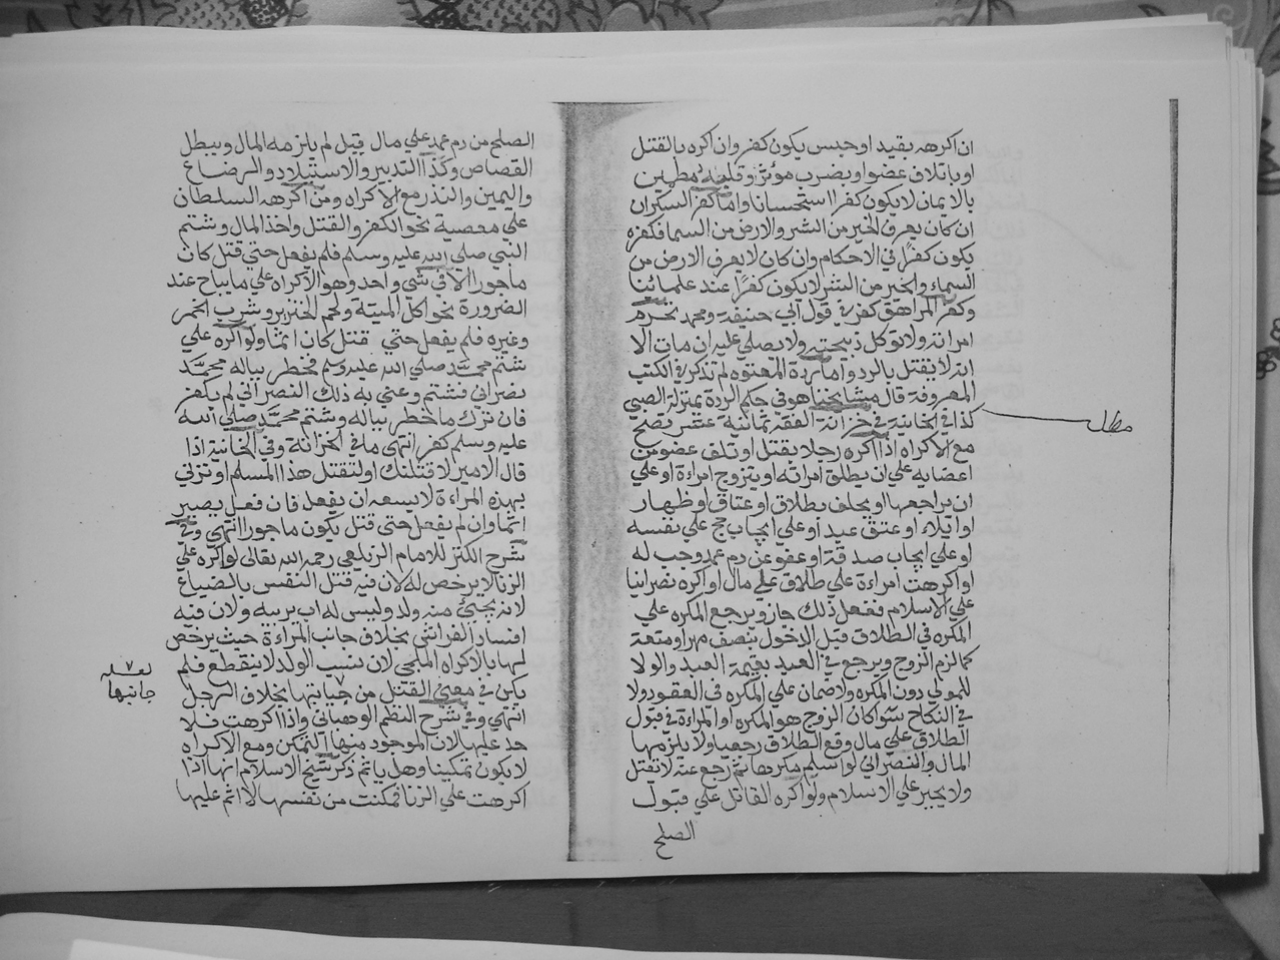 ان اكرهه بقيد او حبس يكون كفر وان اكره بالقتل
او باتلاف عضو او بضرب مؤثر وقلبه مطمئن
بالايمان لا يكون كفرا استحسانا واما كفر السكران
ان كان يعرف الخير من الشر والارض من السما فكفره
يكون كفرا في الاحكام وان كان لا يعرف الارض من
السماء والخير من الشر لا يكون كفرا عند علمائنا
وكفر المراهق كفر في قول ابي حنيفة ومحمد تحرم
امراته ولا توكل ذبيحته ولا يصلي عليه ان مات الا
انه لا يقتل بالرد واما ردة المعتوه لم تذكر في الكتب
المعروفة قال مشايخنا هو في حكم الردة بمنزلة الصبي
كذا في الخانية في خزانة الفقه ثمانية عشر يصح
مطلب
مع الاكراه اذا اكره رجلا بقتل او تلف عضو من
اعضايه علي ان يطلق امراته او يتزوج امراءة او علي
ان يراجعها او يحلف بطلاق او عتاق او ظهار
او ايلاء او عتق عبد او علي ايجاب حج علي نفسه
او علي ايجاب صدقة او عفو عن دم عمد وجب له
او اكرهت امراءة علي طلاق علي مال او اكره نصرانيا
علي الاسلام ففعل ذلك جاز ويرجع المكره علي
المكره في الطلاق قبل الدخول بنصف مهر او متعة
كما لزم الزوج ويرجع في العبد بقيمة العبد والولا
للمولي دون المكره ولا ضمان علي المكره في العقود ولا
في النكاح سوا كان الزوج هو المكره او المراءة في قبول
الطلاق علي مال وقع الطلاق رجعيا ولا يلزمها
المال والنصراني لو اسلم مكرها ثم رجع عنه لا يقتل
ولا يجبر علي الاسلام ولو اكره القاتل علي قبول
الصلح
الصلح من دم عمد علي مال قبل لم يلزمه المال ويبطل
القصاص وكذا التدبير والاستيلاد والرضاع
واليمين والنذر مع الاكراه ومن اكرهه السلطان
علي معصية نحو الكفر والقتل واخذ المال وشتم
النبي صلي الله عليه وسلم فلم يفعل حتي قتل كان
ماجورا الا في شي واحد وهو الاكراه علي ما يباح عند
الضرورة نحو اكل الميتة ولحم الخنزير وشرب الخمر
وغيره فلم يفعل حتي قتل كان اثما ولو اكره علي
شتم محمد صلي الله عليه وسلم فخطر بباله محمد
نصراني فشتم وعني به ذلك النصراني لم يكفر
فان ترك ما خطر بباله وشتم محمد صلي الله
عليه وسلم كفر انتهي ما في الخزانة وفي الخانية اذا
قال الامير لاقتلنك او لتقتل هذا المسلم او تزني
بهذه المراءة لا يسعه ان يفعل فان فعل يصير
اثما وان لم يفعل حتي قتل يكون ماجورا انتهي وفي
شرح الكنز للامام الزيلعي رحمه الله تعالي لو اكره علي
الزنا لا يرخص له لان فيه قتل النفس بالضياع
لانه يجئ منه ولد وليس له اب يربيه ولان فيه
افساد الفراش بخلاف جانب المراءة حيث يرخص
لها بالاكراه الملجي لان نسب الولد لا ينقطع فلم
يكن في معني القتل من جنايتها بخلاف الرجل
لعله
جانبها
انتهي وفي شرح النظم الوهباني واذا اكرهت فلا
حد عليها لان الموجود منها التمكن ومع الاكراه
لا يكون تمكينا وهل ياثم ذكر شيخ الاسلام انها اذا
اكرهت علي الزنا فمكنت من نفسها لا اثم عليها